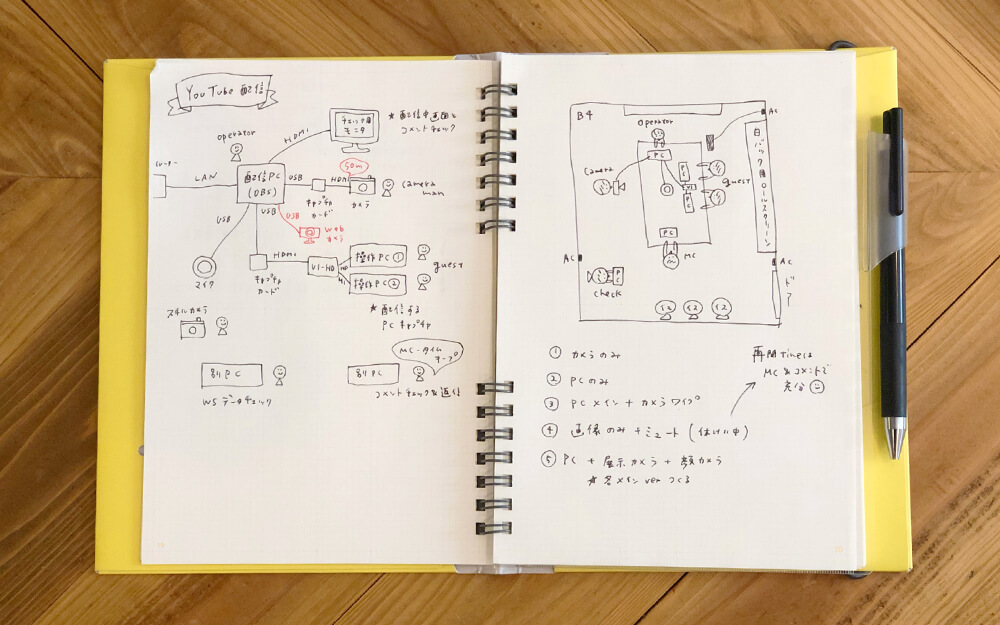 YouTube 配信
operator
HDMI
チェック用
モニタ
★ 配信中画面と
コメントチェック
ルーター
LAN
配信PC
(OBS)
USB
HDMI
50m
カメラ
camera
man
キャプチャ
カード
USB
USB
USB
Web
カメラ
マイク
キャプチャ
カード
HDMI
VI-HD
操作PC①
操作PC②
guest
★ 配信する
PCキャプチャ
スチルカメラ
別PC
WSデータチェック
MC-タイム
キープ
別PC
コメントチェック&返信
B4
AC
operator
PC
camera
PC
PC
guest
白バック用ロールスクリーン
PC
MC
AC
AC
ドア
PC
check
イス
イス
イス
① カメラのみ
② PCのみ
③ PCメイン + カメラワイプ
④ 画像のみ + ミュート (休けい中)
⑤ PC + 展示カメラ + 顔カメラ
★ 各メインverつくる
再開Timeは
MC&コメントで
充分